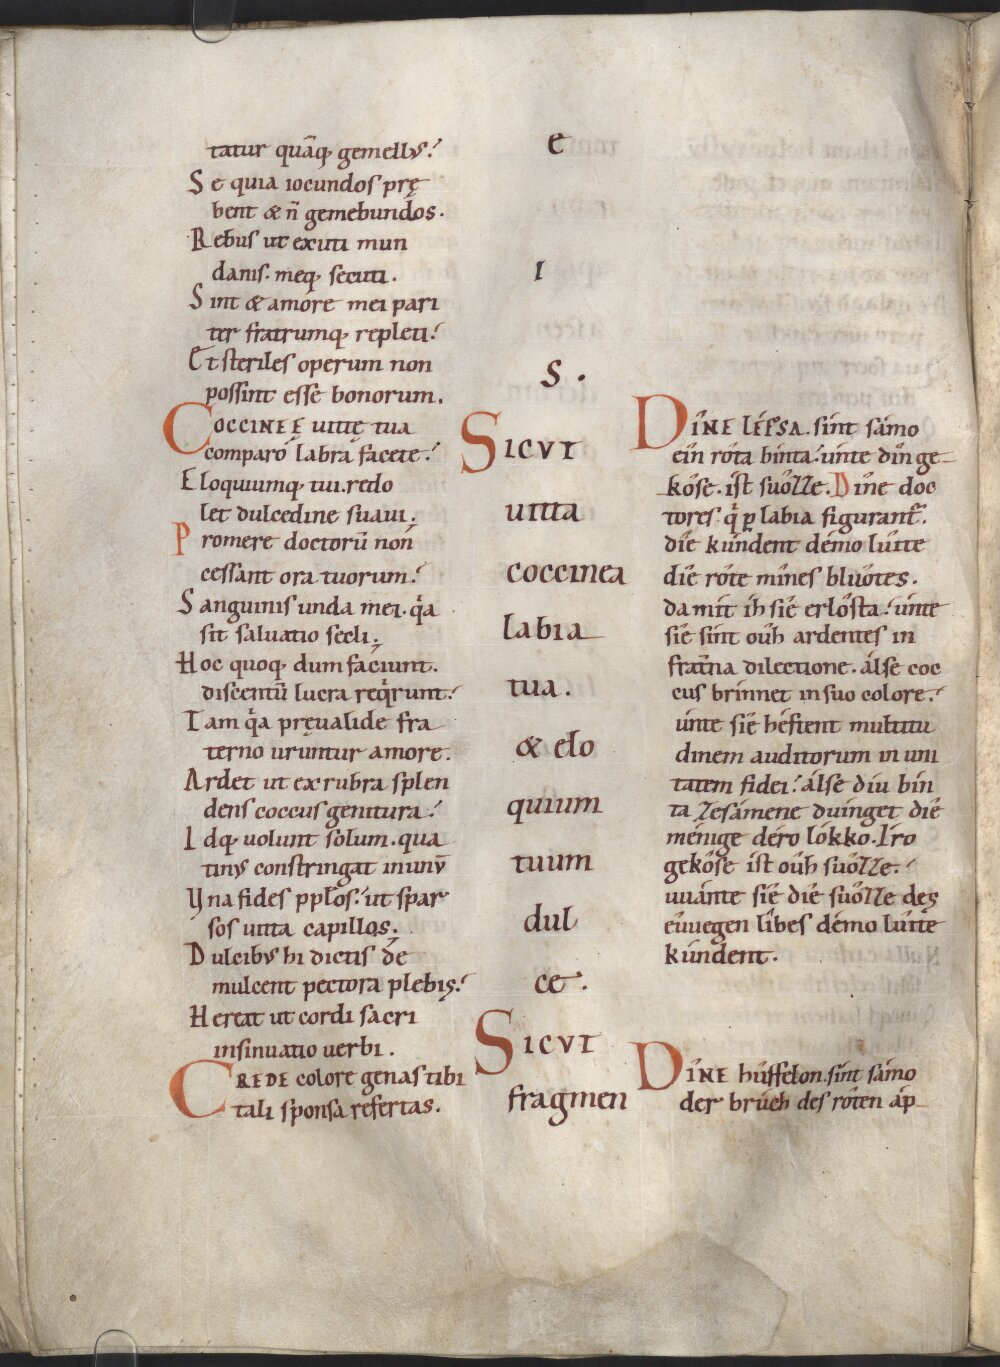 tatur quāq; gemellus?
Se quia iocundos prę
bent & n̄ gemebundos.
Rebus ut exuti mun
danis. meq; secuti.
Sint & amore mei pari
ter fratrumq; repleti?
Et steriles operum non
possint esse bonorum.
COCCINEĘ uittę tua
comparo labra facete?
Eloquiumq; tui. redo
let dulcedine suaui.
Promere doctorū non
cessant ora tuorum?
Sanguinis unda mei. q̇a
sit saluatio secli;
Hoc quoq; dum faciunt.
discentū lucra req̇runt?
Iam q̇a pręualide fra
terno uruntur amore.
Ardet ut ex rubra splen
dens coccus genitura?
Idq; uolunt solum. qua
tinus constringat in unū
Vna fides pplos? ut spar
sos uitta capillos.
Dulcibus hi dictis de
mulcent pectora plebis?
Hereat ut cordi sacri
insinuatio uerbi.
CREDE colore genas tibi
tali sponsa refertas.
e
i
s.
SICVT
uitta
coccinea
labia
tua.
& elo
quium
tuum
dul
ce.
SICVT
fragmen
DÎNE léfsA. sint sámo
eîn rôta bínta? únte dîn ge
kôse. íst suôZZe. Dîne doc
tores. q̇ ꝑ labia figurant᷑.
dîe kúndent démo lûite
dîe rôte mînes bluôtes.
da mít íh siê erlôsta? únte
siê sínt oûh ardentes in
frat̄na dilectione. álse coc
cus brínnet in suo colore?
únte siê héftent multitu
dinem auditorum in uni
tatem fidei? álse díu bín
ta Zesámene duínget dîe
ménige déro lókko. Íro
gekôse íst oûh suôZZe?
uuánte siê dîe suôZZe des
êuuegen lîbes démo lûite
kúndent.
DÎNE hûffelon. sínt sámo
der brúch des rôten áp